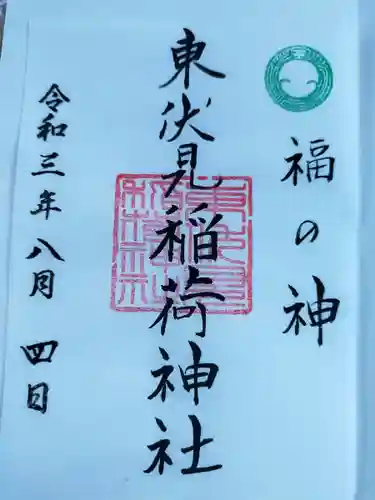 福の神
東伏見稲荷神社
令和三年八月四日